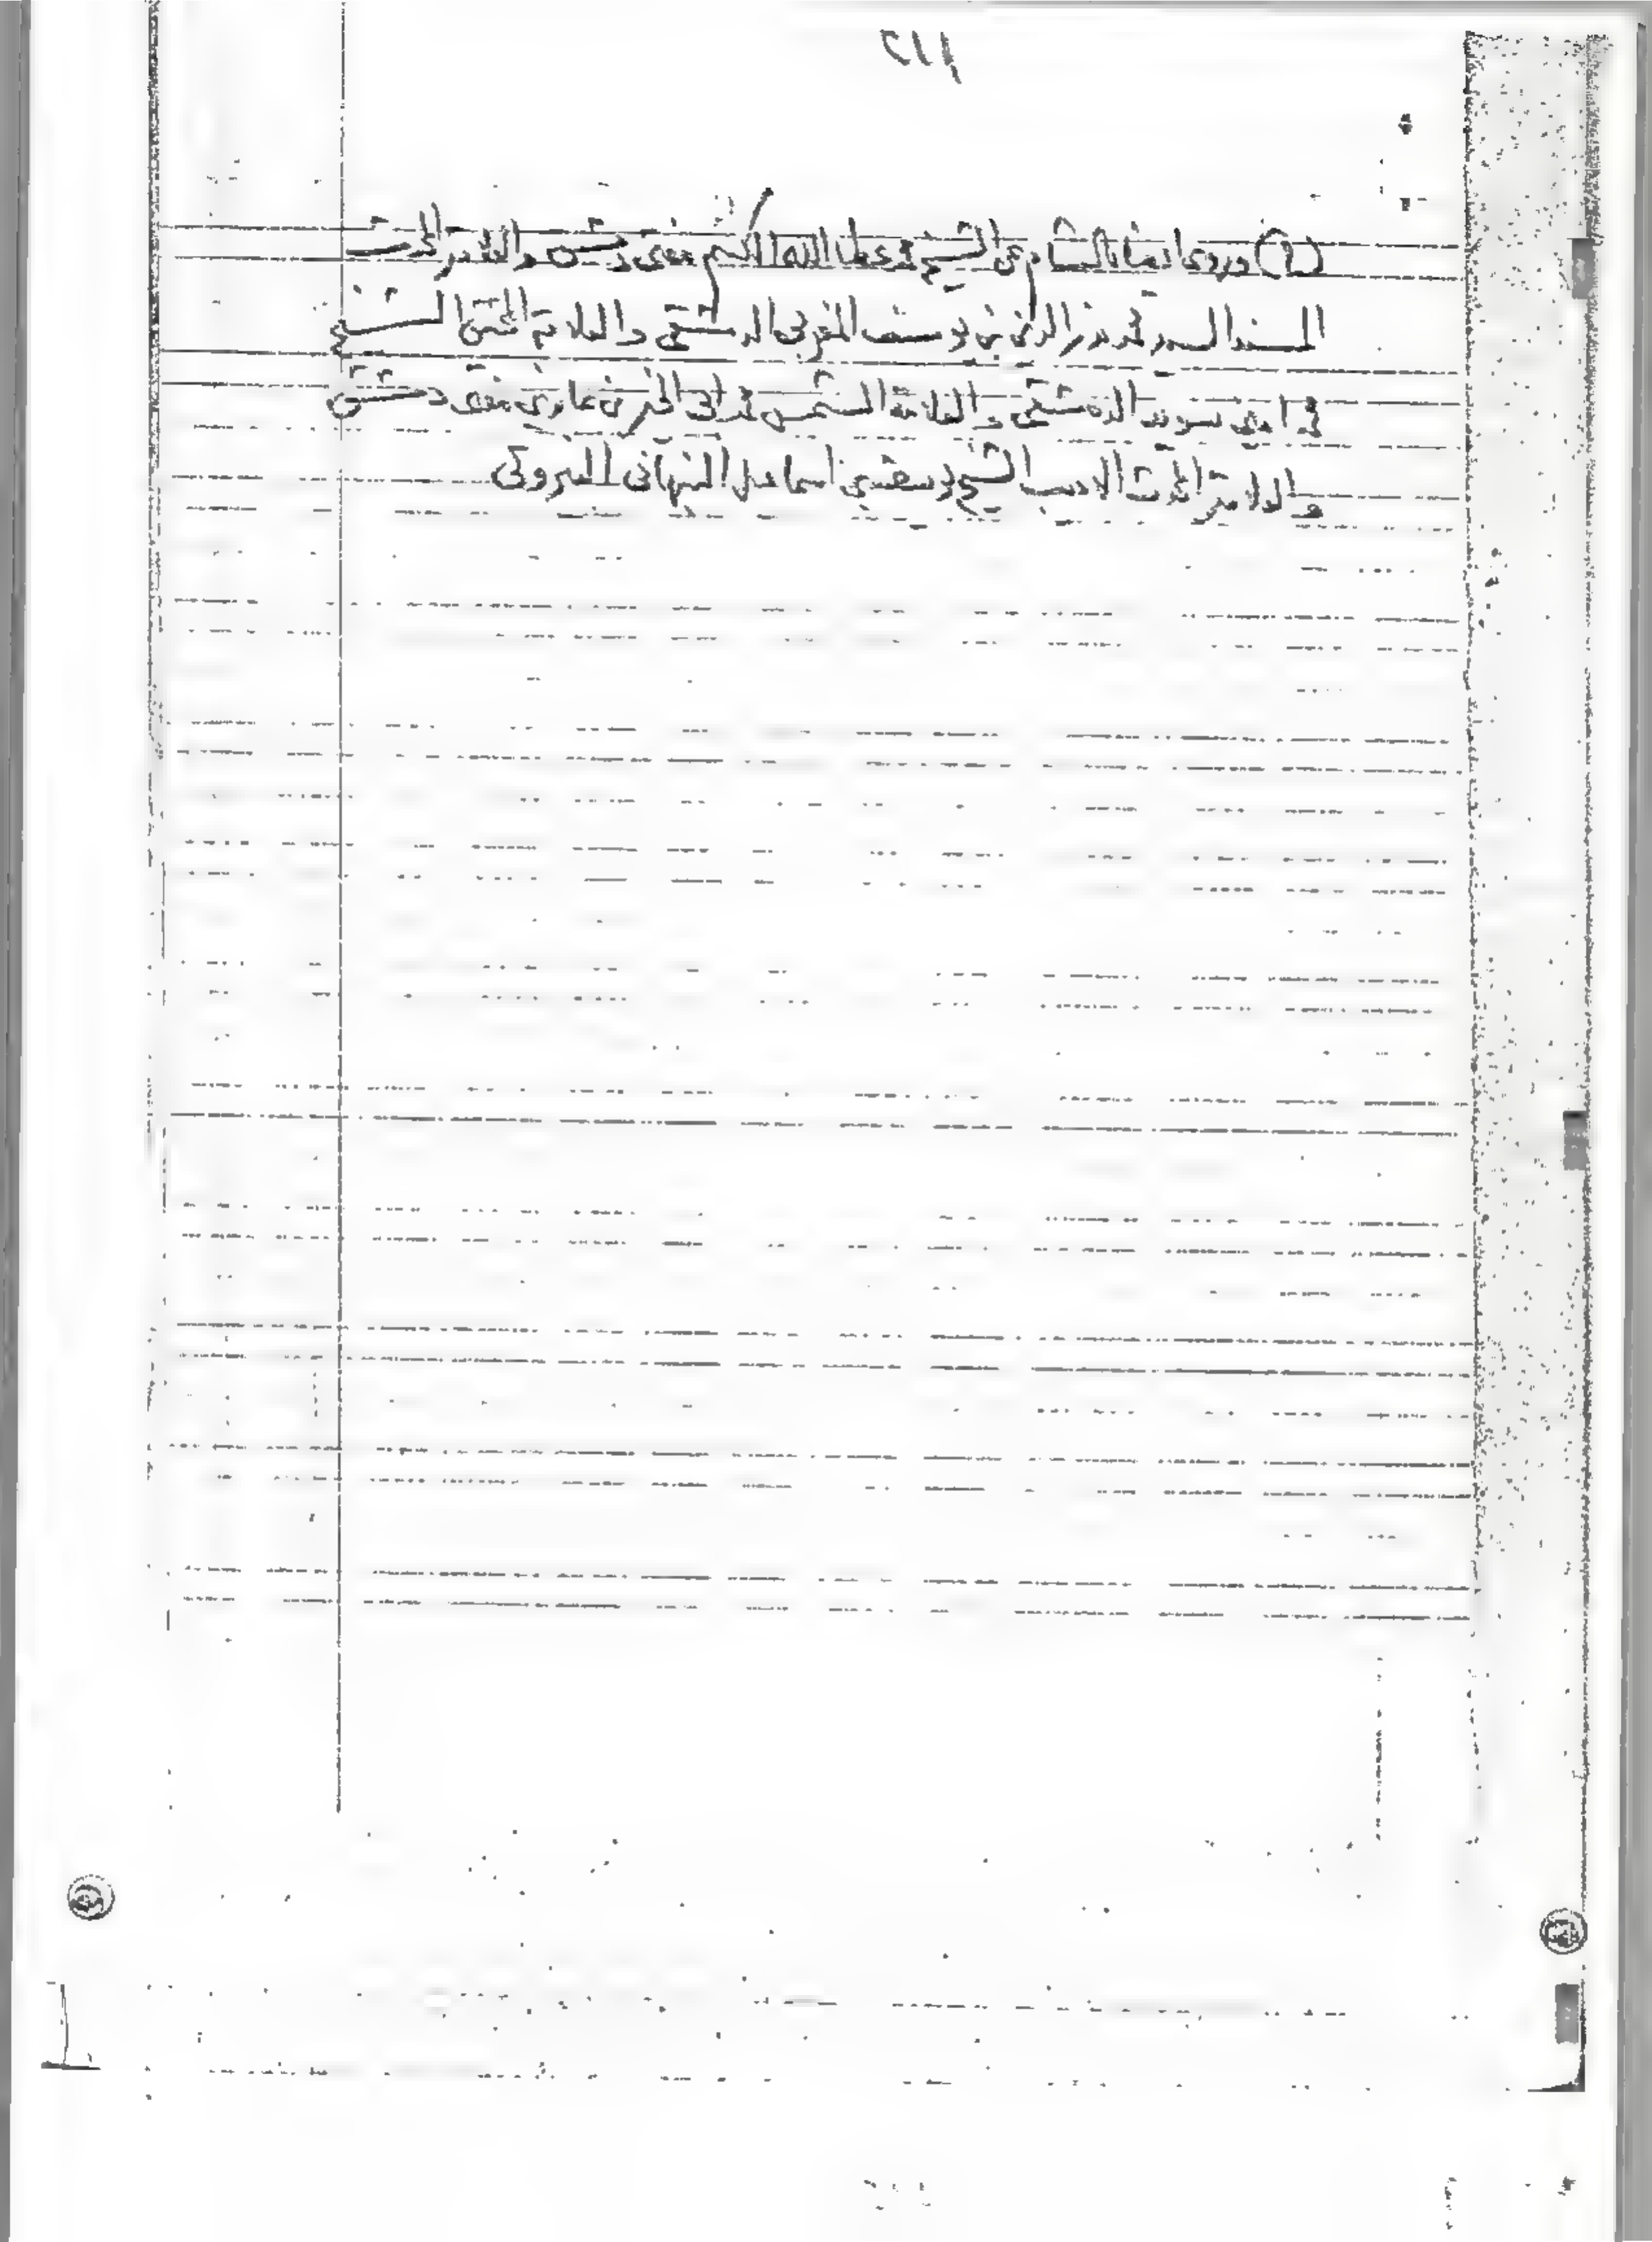 ٢١١
(١) وروى ايضا بالشام عن الشيخ محمد عطا الله الكسم مفتى دمشق والعلامة المحدث
المسند السيد محمد بدر الدين بن يوسف المغربى الدمشقى والعلامة المحقق الشيخ
محمد امين سويد الدمشقى والعلامة الشمس محمد ابى الخير بن عابدين مفتى دمشق
والعلامة المحدث الاديب الشيخ يوسف بن اسماعيل النبهانى البيروتى